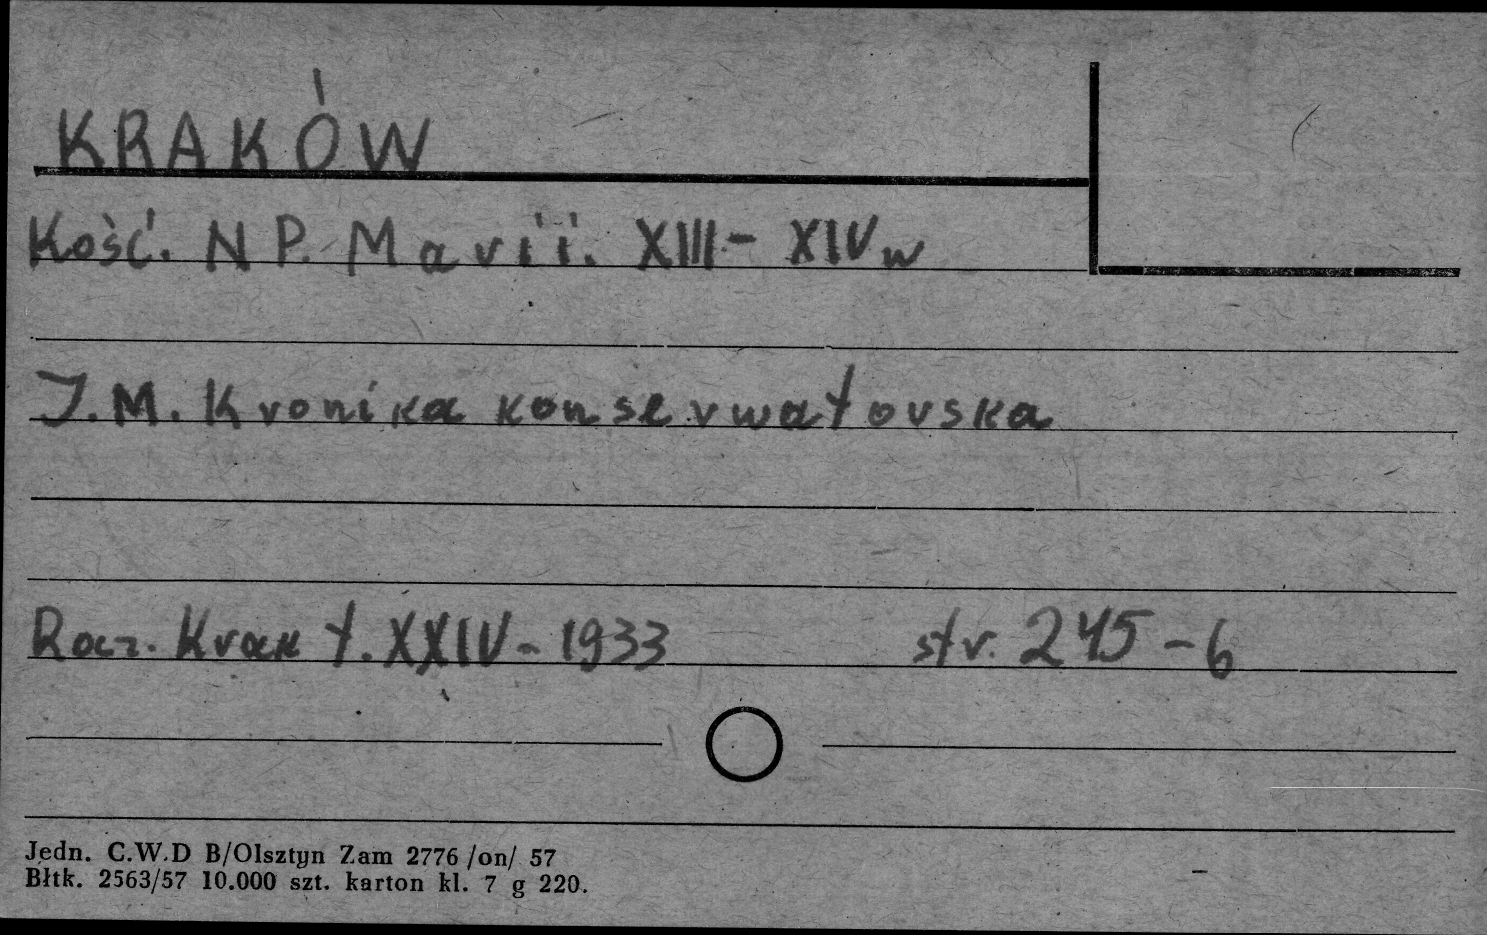 KRAKÓW
Kość. N P. Marii. XIII - XIV w
J. M. Kronika konserwatorska
Rocz. Krak t. XXIV - 1933 str. 245 - 6
Jedn. C.W.D B/Olsztyn Zam 2776 /on/ 57
Błtk. 2563/57 10.000 szt. karton kl. 7 g 220.